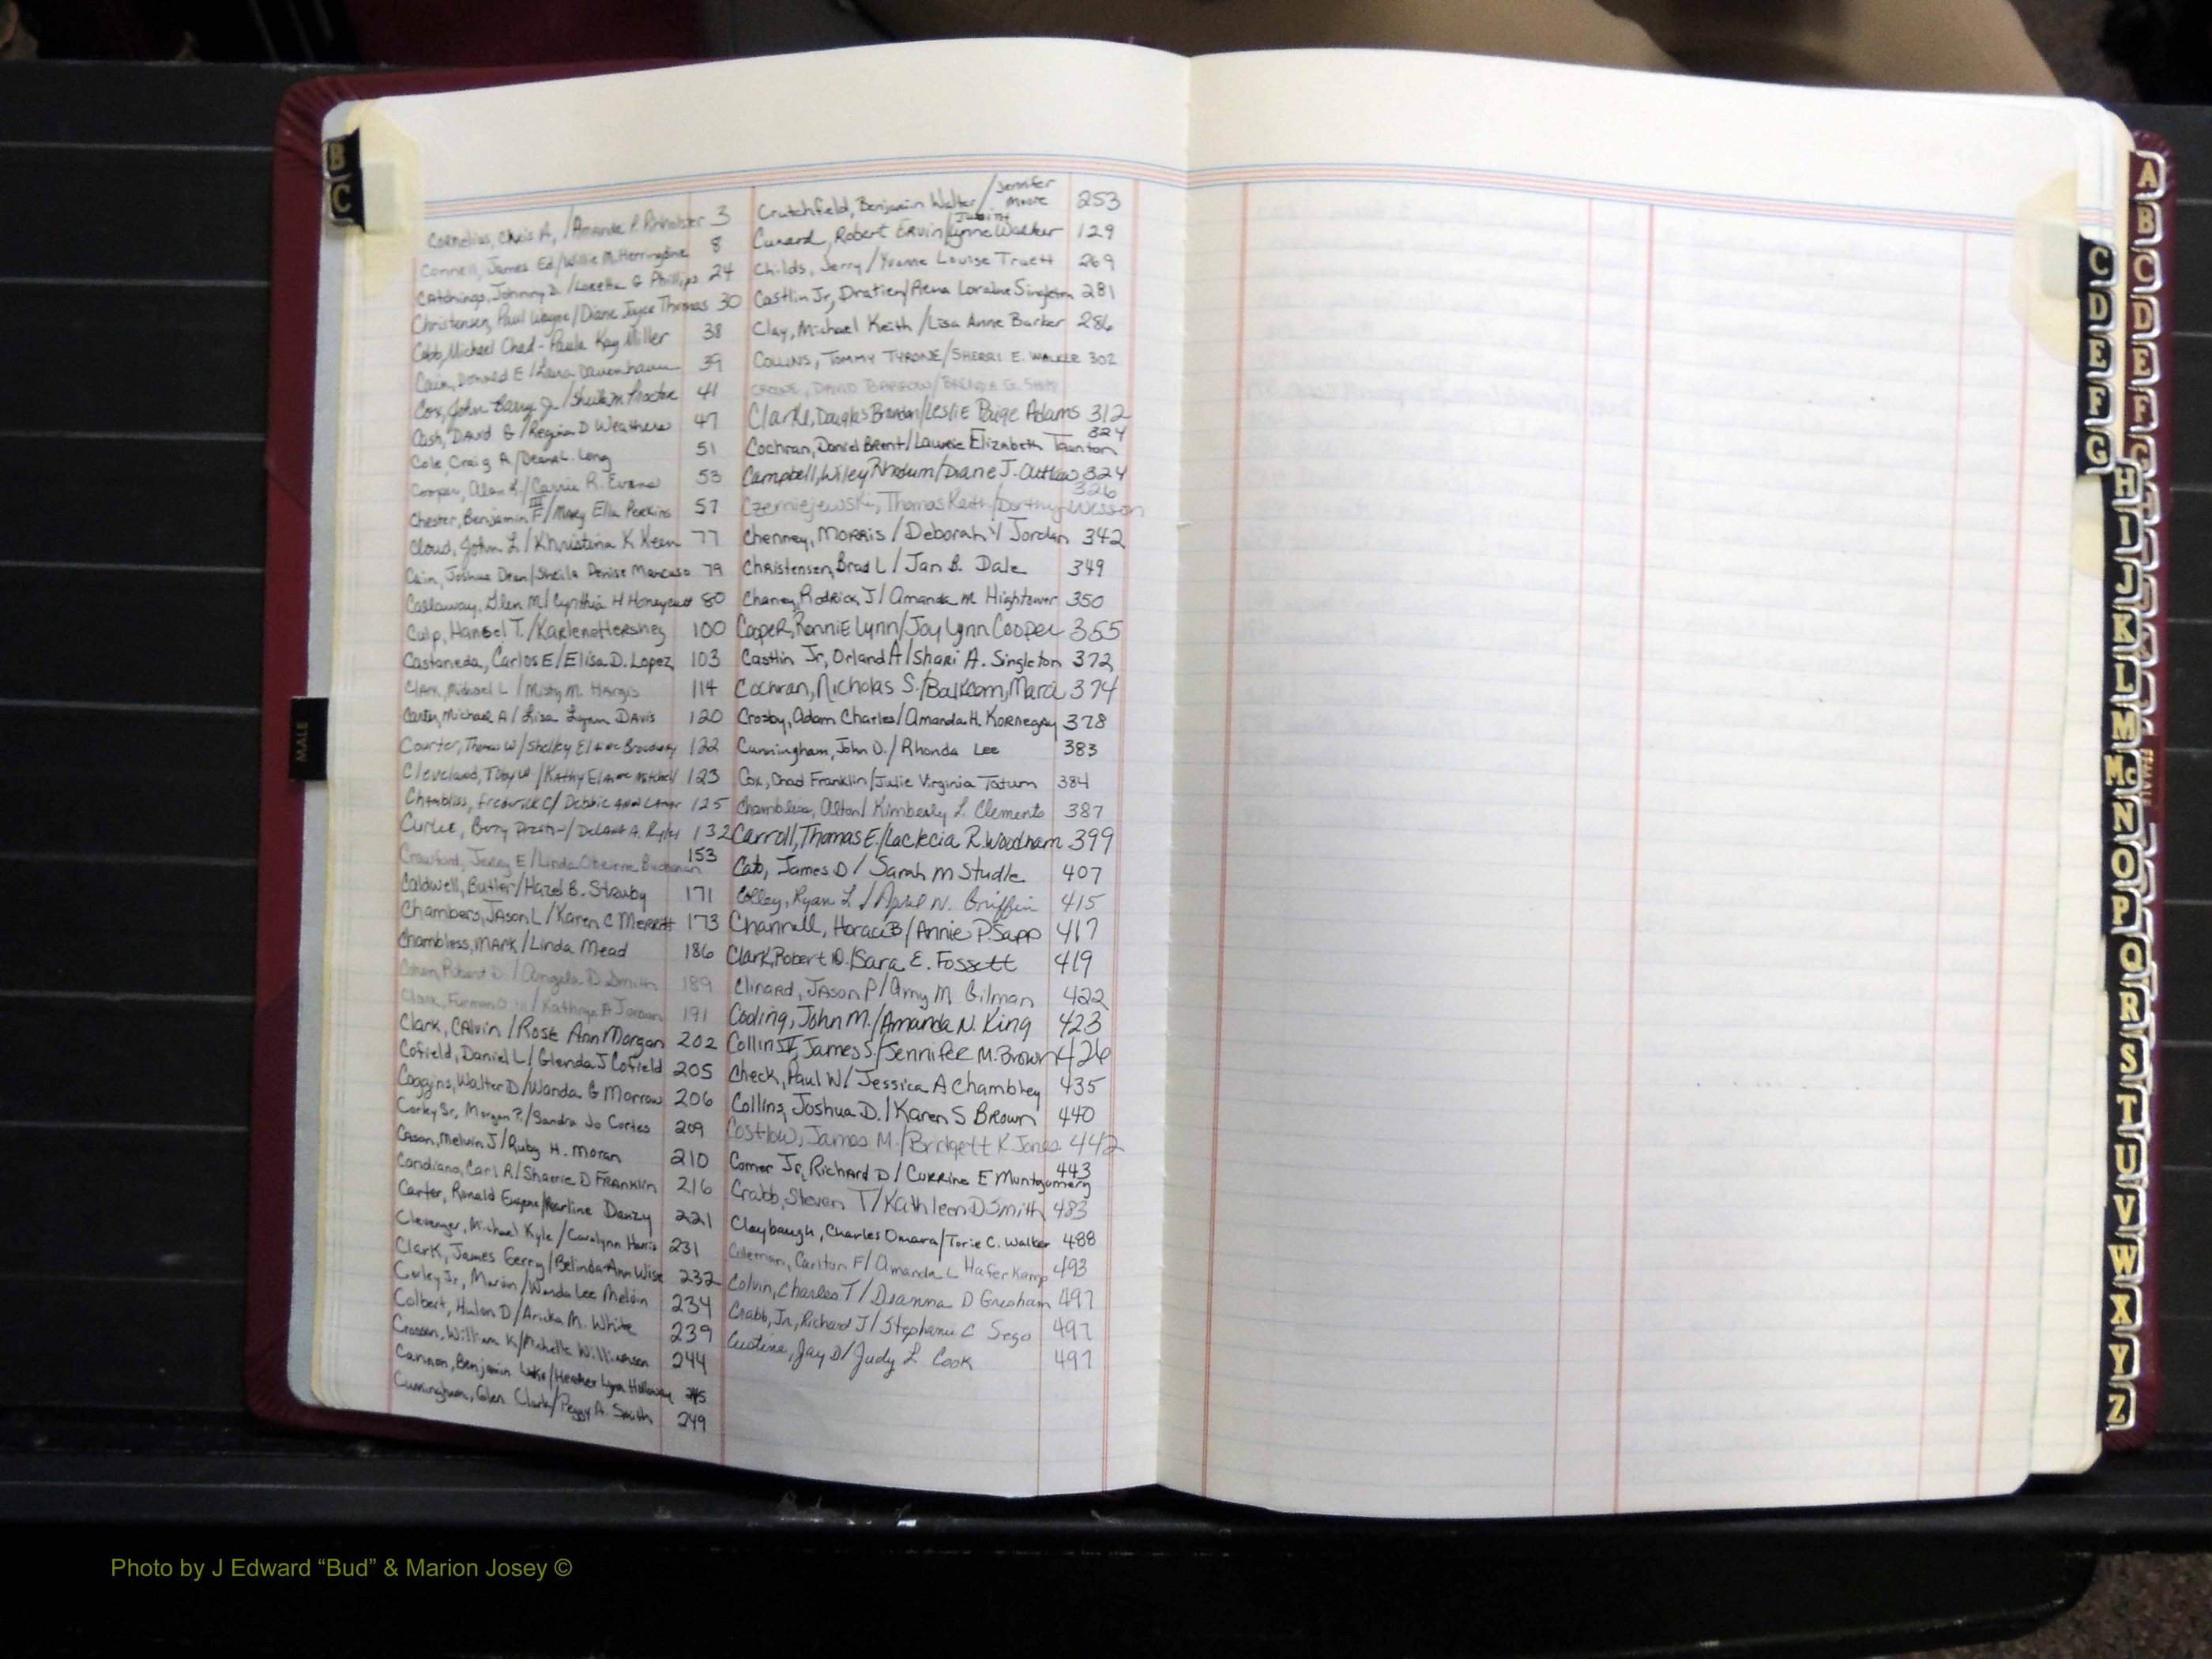 B
C
MALE
Cornelius, Chris A, / Amanda P. 3
Connell, James Ed / Willie M. Herringdine 8
Catchings, Johnny D. / Loretta G Phillips 24
Christensen, Paul Wayne / Diane Joyce Thomas 30
Cobb, Michael Chad - Paula Kay Miller 38
Cain, Donald E / Laura 39
Cox, John Barry Jr / Sheila M Proctor 41
Cash, David G / Regina D Weathers 47
Cole, Craig A / Deana L. Long 51
Cooper, Alan K. / Carrie R. Evans 53
Chester, Benjamin F III / Mary Ella Perkins 57
Cloud, John L / Khristina K Keen 77
Cain, Joshua Dean / Sheila Denise Mancuso 79
Callaway, Glen M / Cynthia H Honeycutt 80
Culp, Hansel T. / Karlene Hershey 100
Castaneda, Carlos E / Elisa D. Lopez 103
Clark, Michael L / Misty M. Hargis 114
Carter, Michael A / Lisa Lynn Davis 120
Courter, Thomas W / Shelley Elaine Broadway 122
Cleveland, Toby W. / Kathy Elaine Mitchell 123
Chambliss, Frederick C / Debbie Ann Lamar 125
Curlee, 132
Crawford, Jerry E / Linda Buchanan 153
Caldwell, Butler / Hazel B. Struby 171
Chambers, Jason L / Karen C Merritt 173
Chambless, Mark / Linda Mead 186
Cohen, Robert D. / Angela D. Smith 189
Clark, Furman D III / Kathryn A Jordan 191
Clark, Calvin / Rose Ann Morgan 202
Cofield, Daniel L / Glenda J Cofield 205
Coggins, Walter D / Wanda G Morrow 206
Corley Sr, Morgan P. / Sandra Jo Cortes 209
Cason, Melvin J / Ruby H. Moran 210
Candiano, Carl A / Sharrie D Franklin 216
Carter, Ronald Eugene / Pearline Danzy 221
Clevenger, Michael Kyle / Carolynn Harris 231
Clark, James Gerry / Belinda Ann Wise 232
Corley Jr, Marion / Wanda Lee Melvin 234
Colbert, Hulon D / Aricka M. White 239
Crossen, William K / Michelle Williamson 244
Cannon, Benjamin Luke / Heather Lynn Holloway 245
Cunningham, Glen Clark / Peggy A. Smith 249
Crutchfield, Benjamin Walter / Jennifer Moore 253
Cunard, Robert Ervin / Judith Lynne Walker 129
Childs, Jerry / Yvonne Louise Truett 269
Castlin Jr, Dratien / Rena Loraine Singleton 281
Clay, Michael Keith / Lisa Anne Barker 286
Collins, Tommy Tyrone / Sherri E. Walker 302
Crowe, David Barrow / Brenda G. Shipp
Clarke, Douglas Brandon / Leslie Paige Adams 312
Cochran, Daniel Brent / Laurie Elizabeth Taunton 324
Campbell, Wiley Rhodum / Diane J. Outlaw 324
Czerniejewski, Thomas Keith / Dorthy Wesson 326
Chenney, Morris / Deborah Y Jordan 342
Christensen, Brad L / Jan B. Dale 349
Chaney, Rodrick J / Amanda M Hightower 350
Cooper, Ronnie Lynn / Joy Lynn Cooper 355
Castlin Jr, Orland A / Shari A. Singleton 372
Cochran, Nicholas S. / Balkcom, Marci 374
Crosby, Adam Charles / Amanda H. Kornegay 378
Cunningham, John D. / Rhonda Lee 383
Cox, Chad Franklin / Julie Virginia Tatum 384
Chambliss, Alton / Kimberly L. Clements 387
Carroll, Thomas E. / Lackecia R. Woodham 399
Cato, James D / Sarah M Studle 407
Colley, Ryan L / April N. Griffin 415
Channell, Horace B / Annie P. Sapp 417
Clark, Robert D. / Sara E. Fossett 419
Clinard, Jason P / Amy M. Gilman 422
Coding, John M. / Amanda N. King 423
Collins IV, James S. / Jennifer M. Brown 426
Check, Paul W / Jessica A Chambley 435
Collins, Joshua D. / Karen S Brown 440
Costlow, James M. / Bridgett K Jones 442
Comer Jr, Richard D / Currine E Muntgomery 443
Crabb, Steven T / Kathleen D Smith 483
Claybaugh, Charles Omara / Torie C. Walker 488
Coleman, Carlton F / Amanda L Haferkamp 493
Colvin, Charles T / Deanna D Gresham 497
Crabb, Jr., Richard J / Stephanie C Sego 497
Custine, Jay D / Judy L Cook 497
A
B
C
D
E
F
G
C
D
E
F
G
H
I
J
K
L
M
Mc
N
O
P
Q
R
S
T
U
V
W
X
Y
Z
Photo by J Edward “Bud” & Marion Josey ©